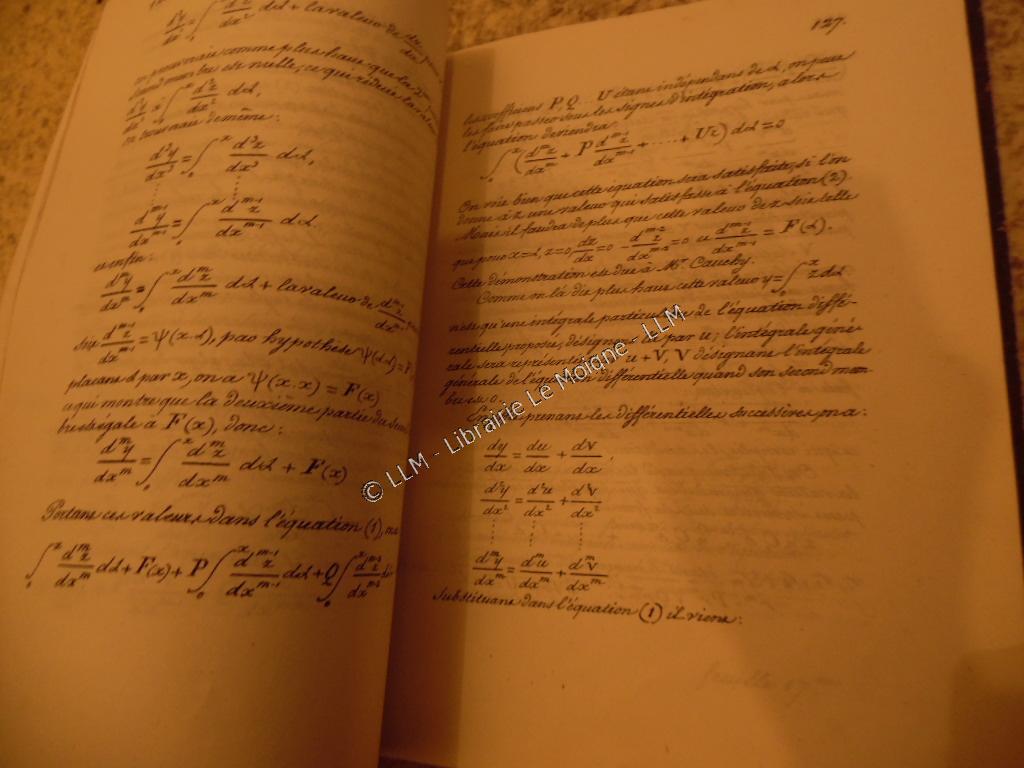 dy/dx = ∫ dz/dx² dα + la valeur de dz/dx
on prouvrait comme plus haut que le 2me
second membre est nulle; ce qui réduit la valeur
d²y/dx² = ∫₀ˣ d²z/dx² dα,
on trouvrait de même:
d³y/dx³ = ∫₀ˣ d³z/dx³ dα,
dᵐ⁻¹y/dxᵐ⁻¹ = ∫₀ˣ dᵐ⁻¹z/dxᵐ⁻¹ dα.
et enfin:
dᵐy/dxᵐ = ∫₀ˣ dᵐz/dxᵐ dα + la valeur de dᵐ⁻¹z/dxᵐ⁻¹
Soit dᵐ⁻¹z/dxᵐ⁻¹ = Ψ(x.α), par hypothèse Ψ(α.α) = F
plaçant α par x, on a Ψ(x.x) = F(x)
ce qui montre que la deuxième partie du second
bre est égale à F(x), donc:
dᵐy/dxᵐ = ∫₀ˣ dᵐz/dxᵐ dα + F(x)
Portant ces valeurs dans l'équation (1), on a
∫₀ˣ dᵐz/dxᵐ dα + F(x) + P∫₀ˣ dᵐ⁻¹z/dxᵐ⁻¹ dα + Q∫₀ˣ dᵐ⁻²z/dxᵐ⁻²
127.
les coefficiens P, Q ... U étant indépendans de α, on peut
les faire passer sous les signes d'intégration, alors
l'équation deviendra:
∫₀ˣ (dᵐz/dxᵐ + P dᵐ⁻¹z/dxᵐ⁻¹ + ...... + Uz) dα = 0
On voit bien que cette équation sera satisfaite, si l'on
donne à z une valeur qui satisfasse à l'équation (2).
Mais il faudra de plus que cette valeur de z soit telle
que pour x = α, z = 0 dz/dx = 0 - dᵐ⁻²z/dxᵐ⁻² = 0 et dᵐ⁻¹z/dxᵐ⁻¹ = F(α).
Cette démonstration est due à Mr. Cauchy.
Comme on l'a dit plus haut cette valeur y = ∫₀ˣ z dα
n'est qu'une intégrale particulière de l'équation diffé-
rentielle proposée; désignant par u; l'intégrale géné-
rale sera représentée u + V, V désignant l'intégrale
générale de l'équation différentielle quand son second mem-
bre est 0.
prenant les différentielles successives on a:
dy/dx = du/dx + dV/dx,
d²y/dx² = d²u/dx² + d²V/dx²
dᵐy/dxᵐ = dᵐu/dxᵐ + dᵐV/dxᵐ
Substituant dans l'équation (1) il vient:
© LLM - Librairie Le Moigne - LLM